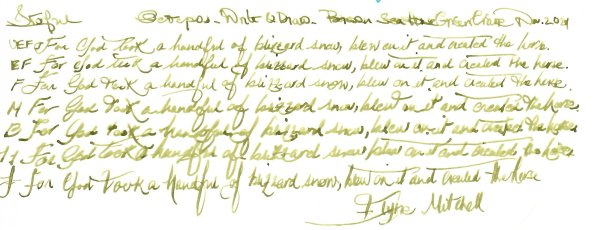 Octopus Write & Draw Poison Sea Green Nov. 2021
EF For God took a handful of blizzard snow, blew on it and created the horse.
EF For God took a handful of blizzard snow, blew on it and created the horse.
F For God took a handful of blizzard snow, blew on it and created the horse.
M For God took a handful of blizzard snow, blew on it and created the horse.
B For God took a handful of blizzard snow, blew on it and created the horse
For God took a handful of blizzard snow blew on it and created the horse
For God took a handful of blizzard snow, blew on it and created the horse
Mitchell